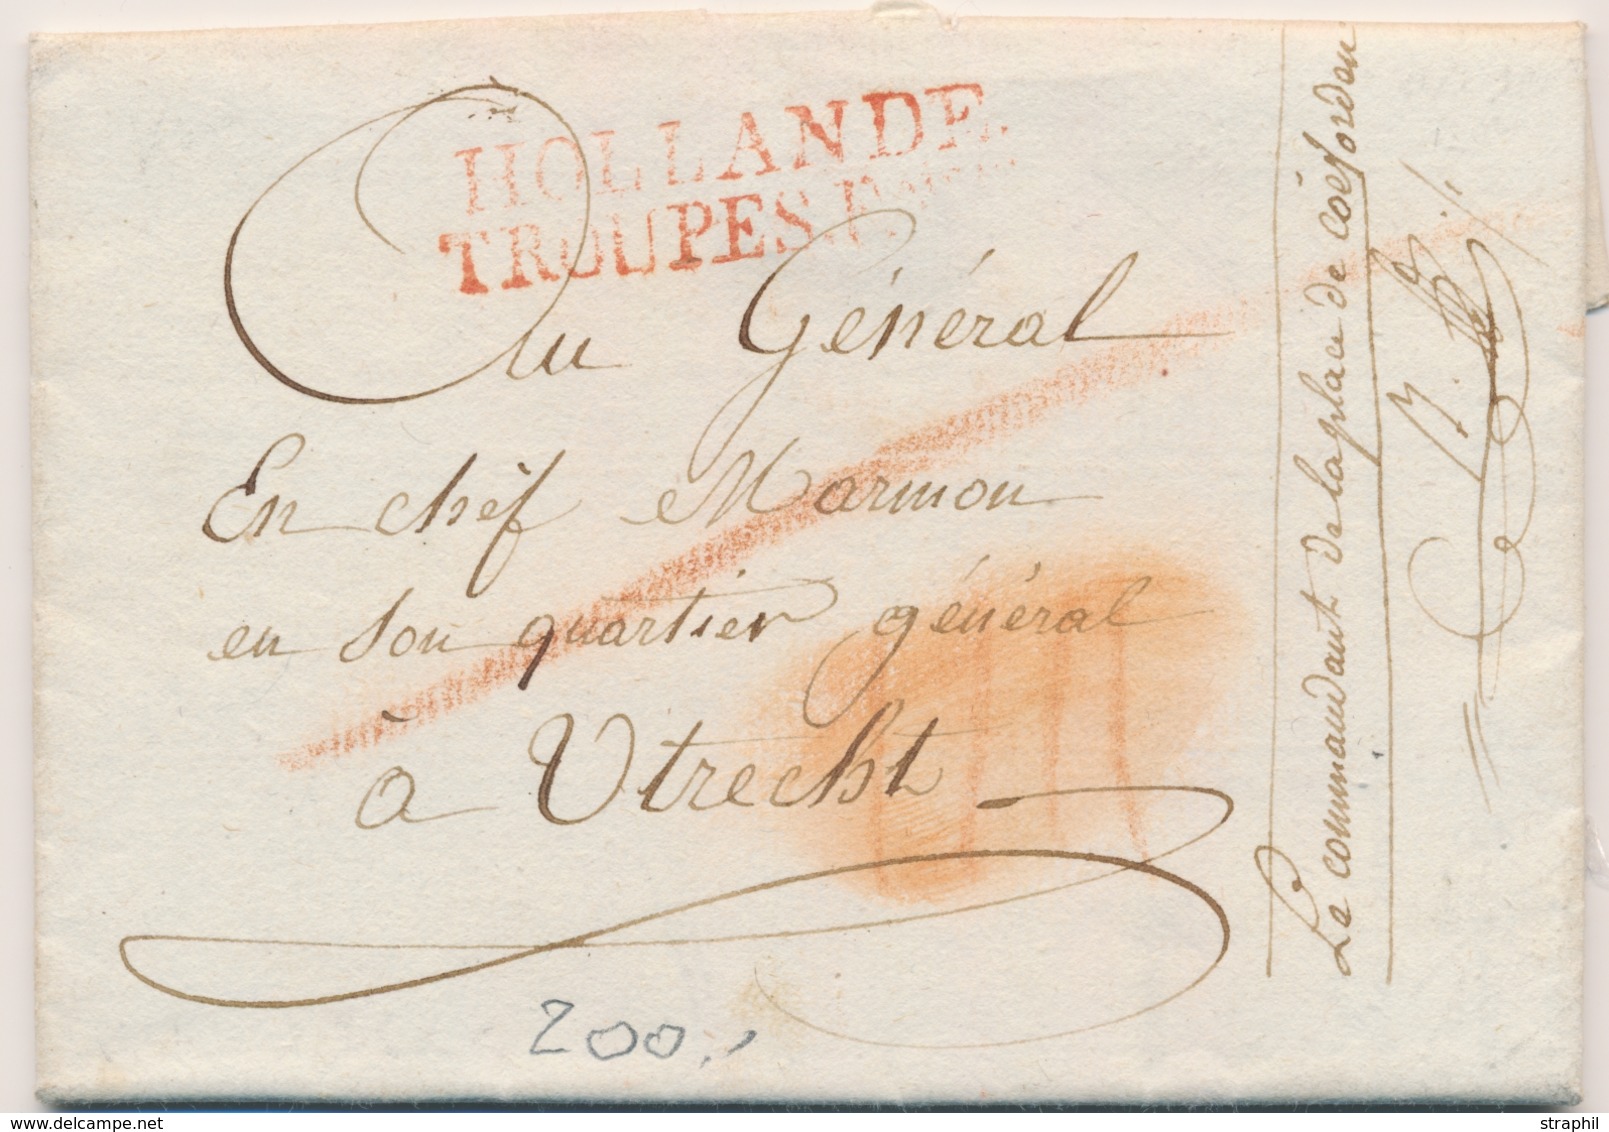 HOLLANDE
TROUPES.
Au Général
En chèf Marmon
en son quartier général
à Utrecht
200
Le commandant de la place de coëforden
www.delcampe.net
straphil